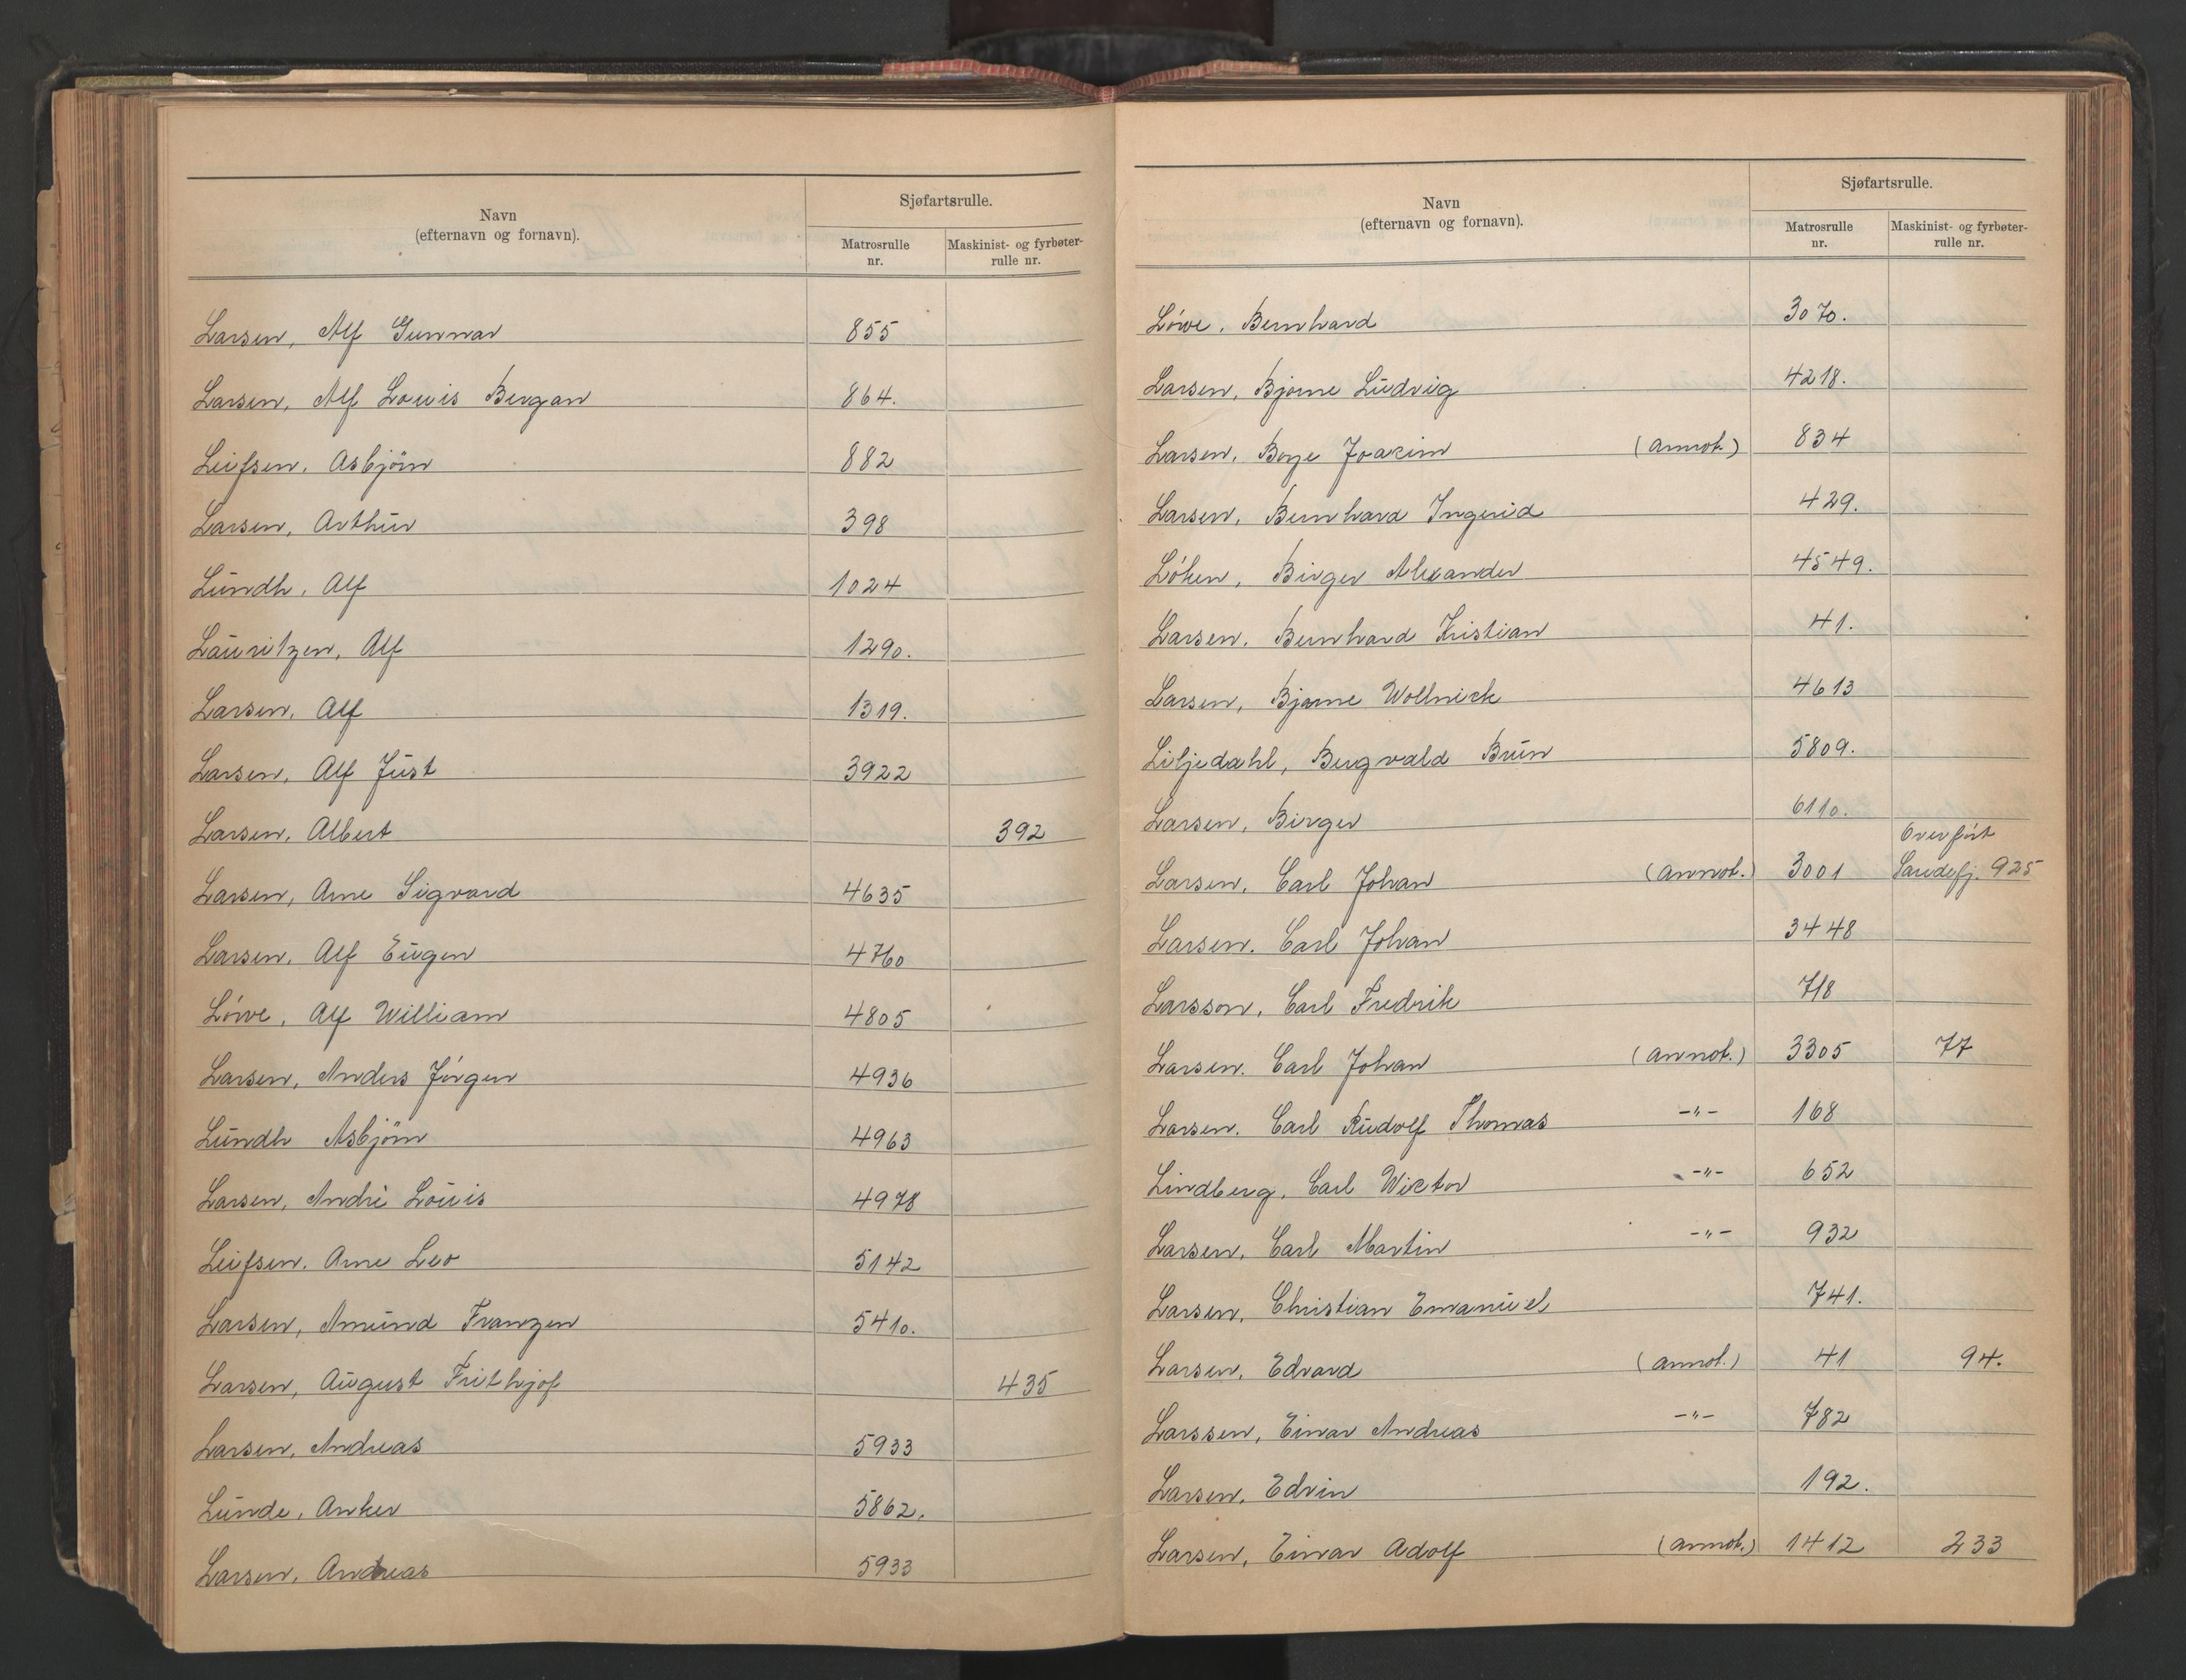 Navn
(efternavn og fornavn).
Sjøfartsrulle.
Matrosrulle nr.
Maskinist- og fyrbøter-rulle nr.
Larsen, Alf Gunnar 855
Larsen, Alf Louis Bergan 864.
Leifsen, Asbjörn 882
Larsen, Arthur 398
Lundh, Alf 1024
Lauritzen, Alf 1290.
Larsen, Alf 1319.
Larsen, Alf Just 3922
Larsen, Albert 392
Larsen, Arne Sigvard 4635
Larsen, Alf Eugen 4760
Löwe, Alf William 4805
Larsen, Anders Jörgen 4936
Lundh Asbjörn 4963
Larsen, André Louis 4978
Leifsen. Arne Leo 5142
Larsen, Amund Franzen 5410.
Larsen, August Frithjof 435
Larsen, Andreas 5933
Lunde, Anker 5862.
Larsen, Andreas 5933
Navn
(efternavn og fornavn).
Sjøfartsrulle.
Matrosrulle nr.
Maskinist- og fyrbøter-rulle nr.
Löwe, Bernhard 3070.
Larsen, Bjarne Ludvig 4218.
Larsen, Borge Joacim (annot.) 834
Larsen, Bernhard Ingerid 429.
Löken, Birger Alexander 4549.
Larsen, Bernhard Kristian 41.
Larsen, Bjarne Wollnick 4613
Liljedahl, Bergvald Brun 5809.
Larsen, Birger 6110.
Overfört
Larsen, Carl Johan (annot.) 3001 Sandefj. 925
Larsen. Carl Johan 3448
Larsson, Carl Fredrik 718
Larsen. Carl Johan (annot.) 3305 77
Larsen. Carl Rudolf Thomas -"- 168
Lindberg, Carl Wictor -"- 652
Larsen, Carl Martin -"- 932
Larsen, Christian Emanuel 741.
Larsen, Edvard (annot.) 41 94.
Larssen, Einar Andreas -"- 782
Larsen, Edvin 192.
Larsen, Einar Adolf (annot.) 1412 233